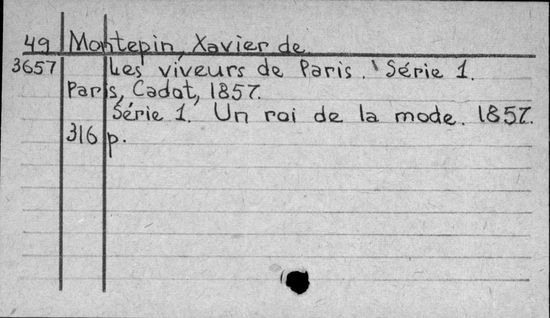 49 Montepin, Xavier de.
3657 Les viveurs de Paris. Série 1.
Paris, Cadot, 1857.
Série 1. Un roi de la mode. 1857.
316 p.